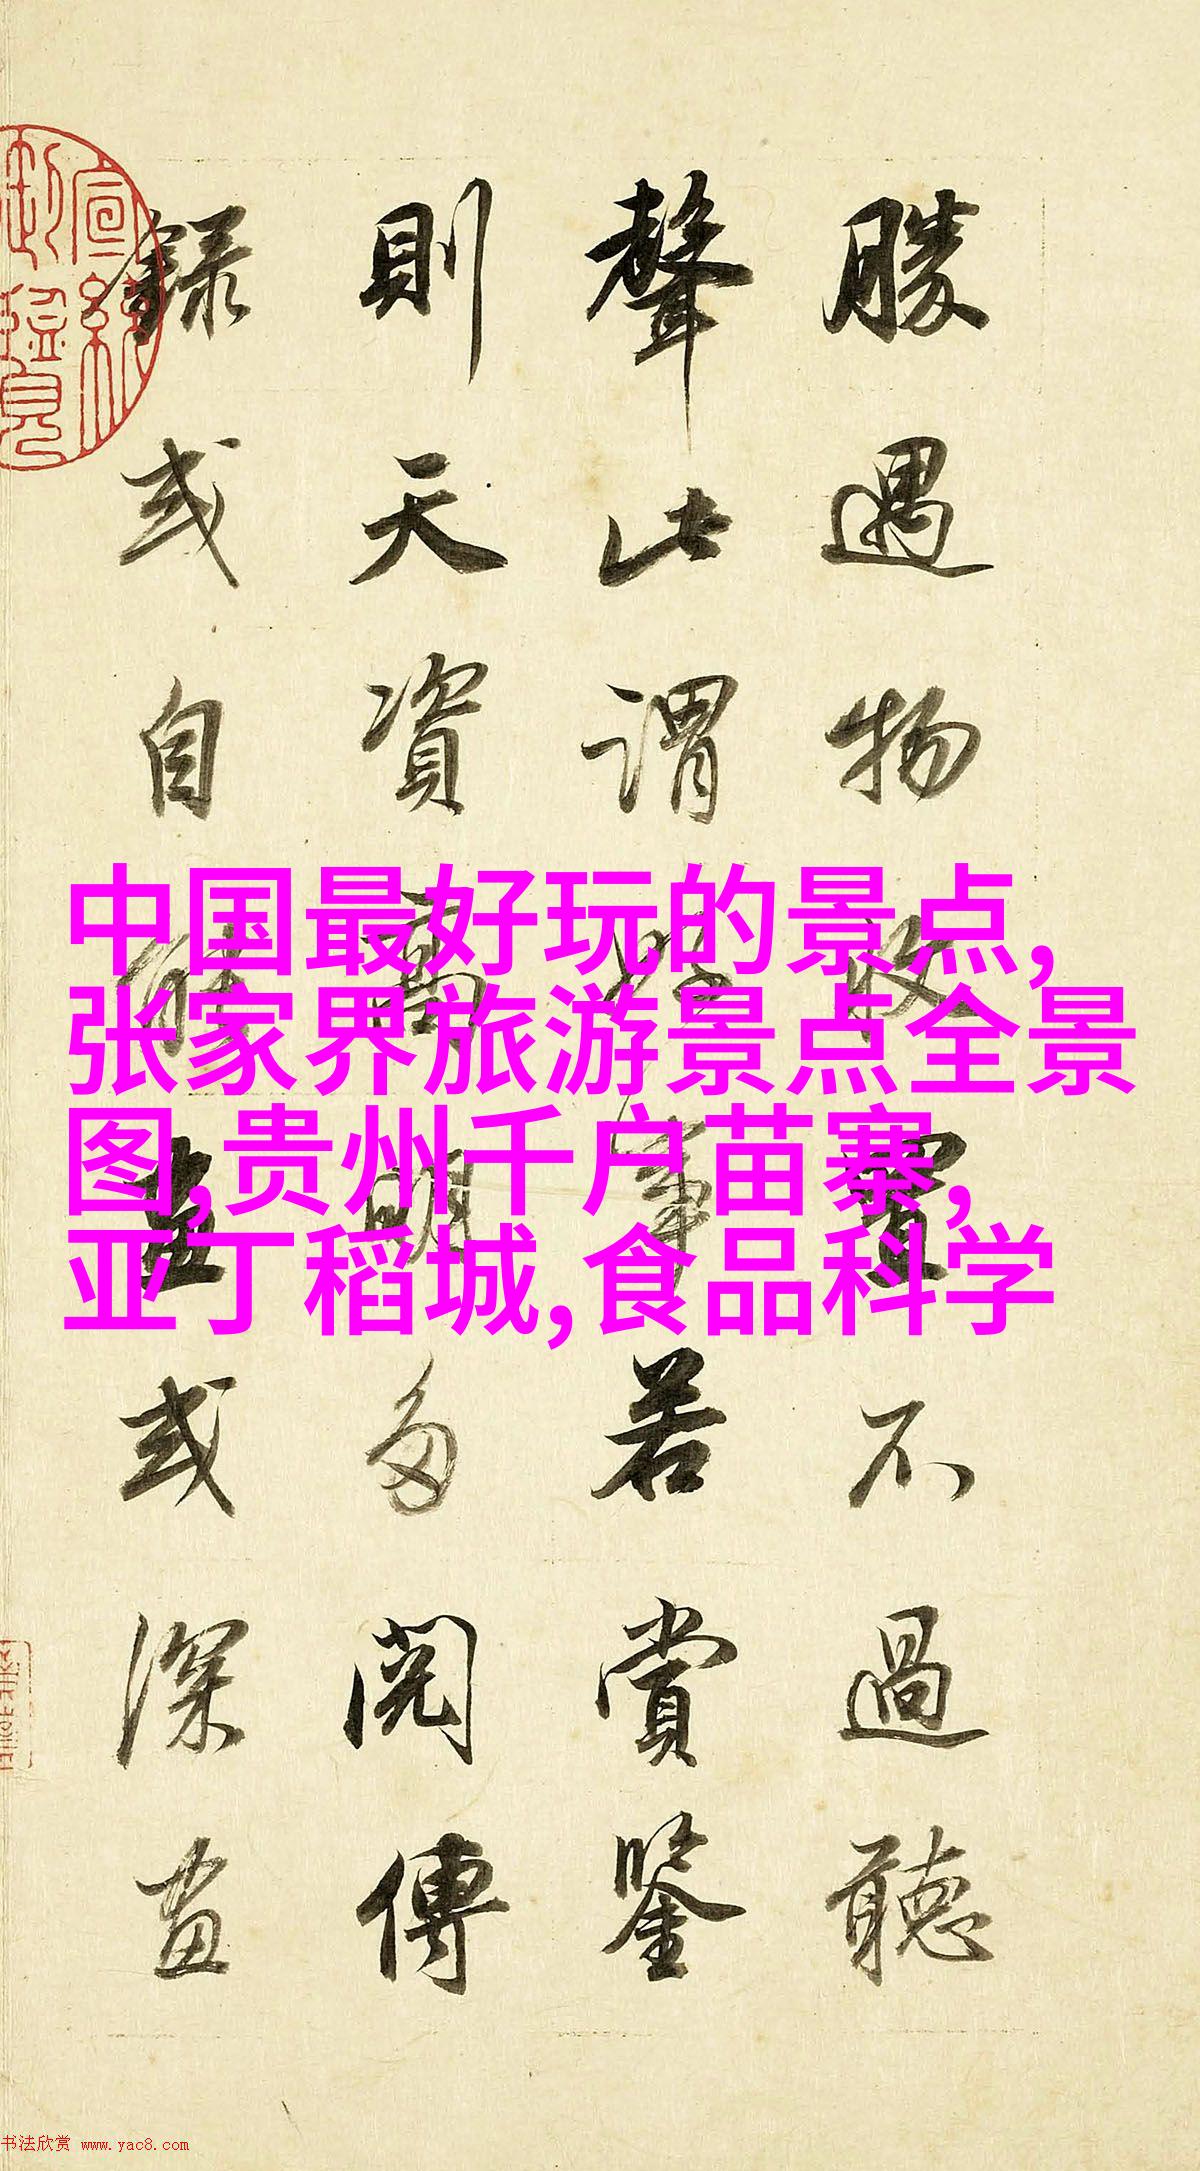 勝遇物收置不過聽
聲此謂好事若賞鑒
則天資高明多閱傳
錄或自能畫或深畫
中国最好玩的景点,
张家界旅游景点全景
图,贵州千户苗寨,
亚丁稻城,食品科学
书法欣赏 www.yac8.com